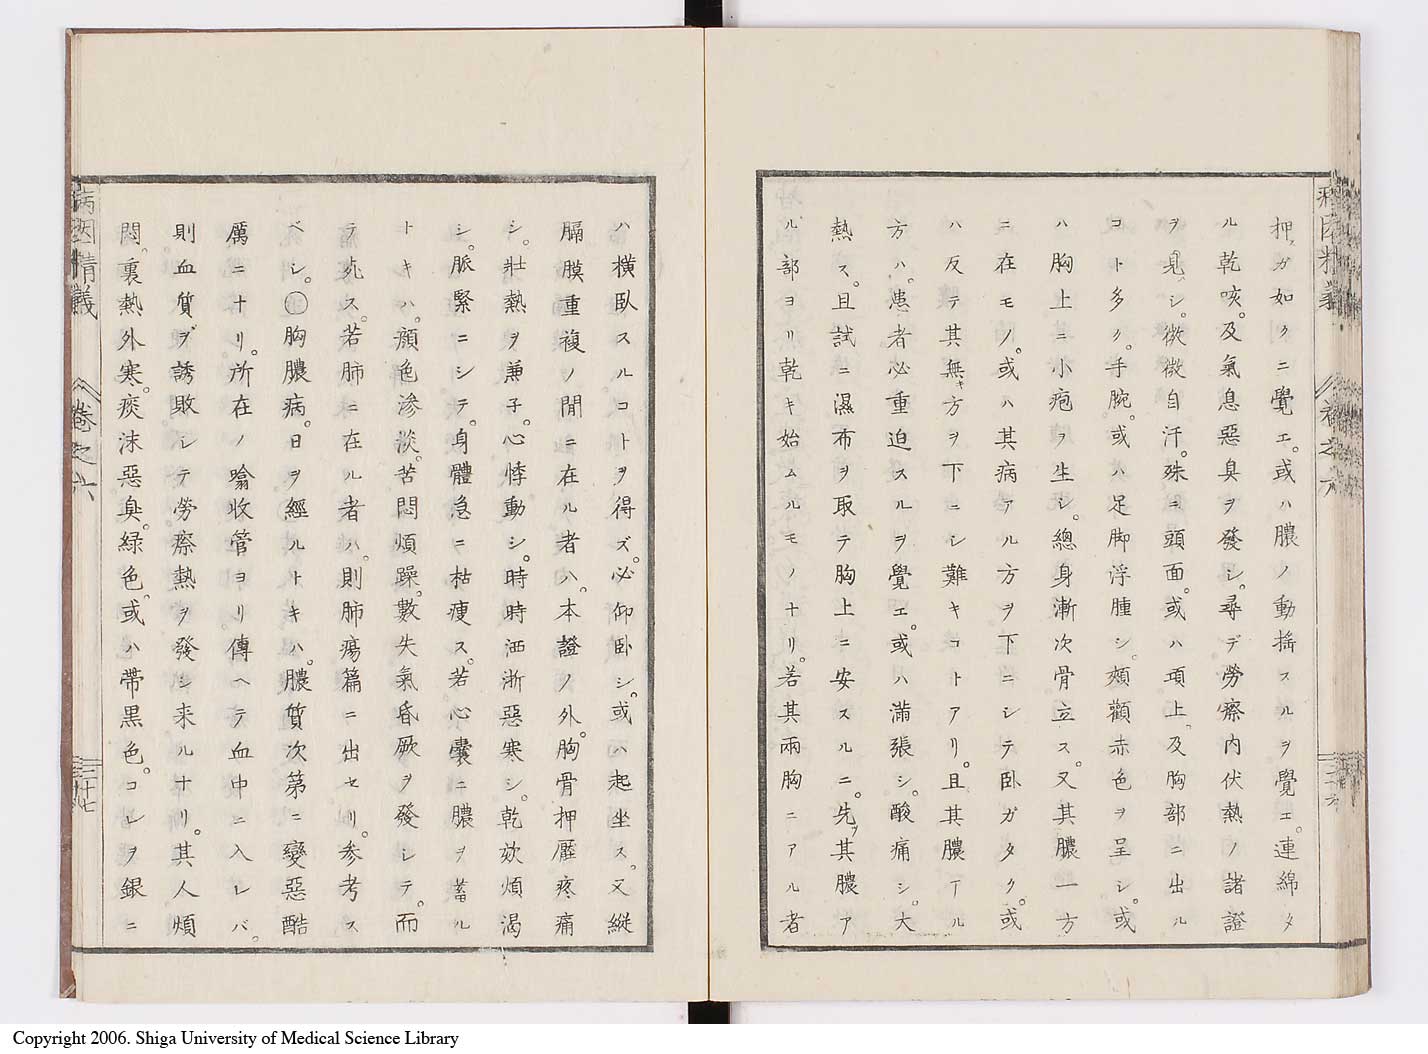 病因精義　巻之六　二十六
押スガ如クニ覺エ。或ハ膿ノ動揺スルヲ覺エ。連綿タ
ル乾咳。及氣息惡臭ヲ發シ。尋デ勞瘵内伏熱ノ諸證
ヲ見ハシ。微微自汗。殊ニ頭面。或ハ項上。及胸部ニ出ル
コト多ク。手腕。或ハ足脚浮腫シ。頰顴赤色ヲ呈シ。或
ハ胸上ニ小疱ヲ生シ。總身漸次骨立ス。又其膿一方
ニ在モノ。或ハ其病アル方ヲ下ニシテ卧ガタク。或
ハ反テ其無キ方ヲ下ニシ難キコトアリ。且其膿アル
方ハ。患者必重迫スルヲ覺エ。或ハ滿張シ。酸痛シ。大
熱ス。且試ニ濕布ヲ取テ胸上ニ安スルニ。先ヅ其膿ア
ル部ヨリ乾キ始ムルモノナリ。若其兩胸ニアル者
ハ横臥スルコトヲ得ズ。必仰卧シ。或ハ起坐ス。又縱
膈膜重複ノ間ニ在ル者ハ。本證ノ外。胸骨押壓疼痛
シ。壯熱ヲ兼子。心悸動シ。時時洒淅惡寒シ。乾欬煩渴
シ。脈緊ニシテ。身體急ニ枯瘦ス。若心囊ニ膿ヲ蓄ル
トキハ。顔色滲淡。苦悶煩躁。數失氣昏厥ヲ發シテ。而
テ死ス。若肺ニ在ル者ハ。則肺瘍篇ニ出セリ。參考ス
ベシ。〇胸膿病。日ヲ經ルトキハ。膿質次第ニ變惡酷
厲ニナリ。所在ノ噏收管ヨリ傳ヘテ血中ニ入レバ。
則血質ヲ誘敗シテ勞瘵熱ヲ發シ来ルナリ。其人煩
悶。裏熱外寒。痰沫惡臭。緑色。或ハ帶黒色。コレヲ銀ニ
病因精義　巻之六　二十七
Copyright 2006. Shiga University of Medical Science Library